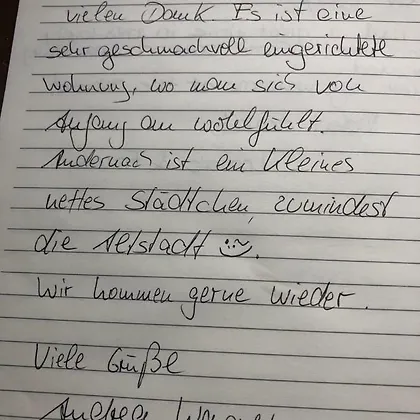 vielen Dank. Es ist eine
sehr geschmachvoll eingerichtete
Wohnung, wo man sich von
Anfang an wohlfühlt.
Andernach ist ein kleines
nettes Städtchen, zumindest
die Altstadt
Wir kommen gerne wieder.
Viele Grüße
Andrea